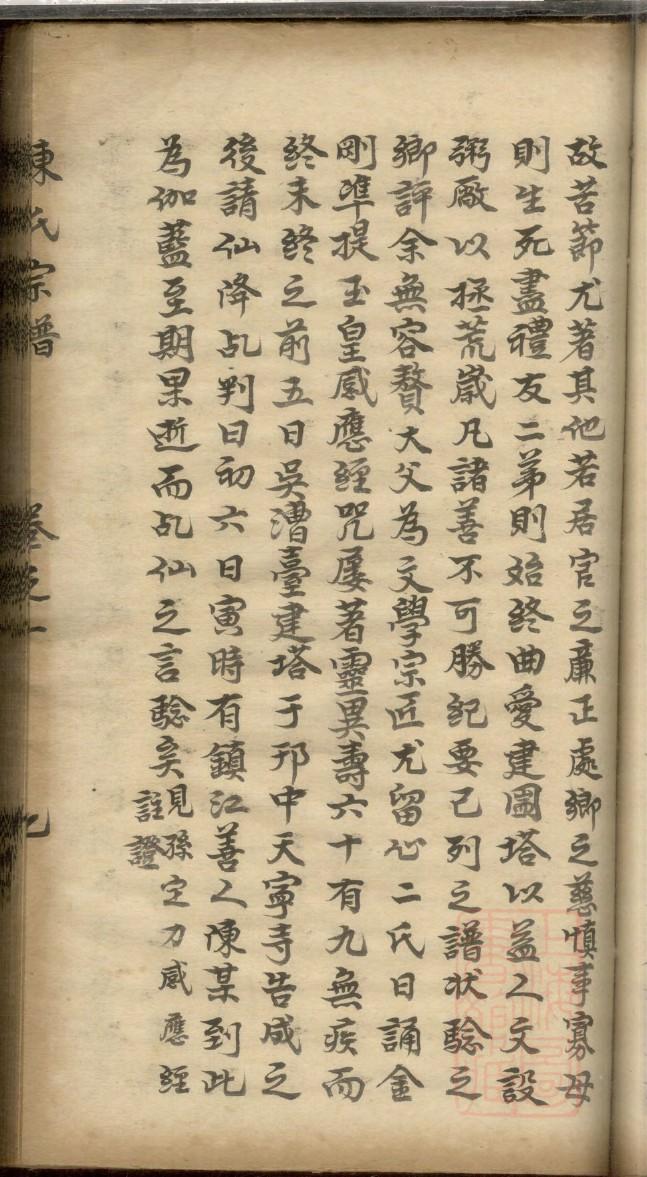 故苦節尤著其他若居官之廉正處鄉之慈慎事寡母
則生死盡禮友二弟則始終曲愛建圖塔以益人文設
粥厰以拯荒歲凡諸善不可勝紀要已列之譜狀驗之
鄉評余無容贅大父為文學宗匠尤留心二氏日誦金
剛準提玉皇感應經咒屡著靈異壽六十有九無疾而
終未終之前五日吳漕臺建塔于邗中天寧寺告成之
後請仙降乩判曰初六日寅時有鎮江善人陳某到此
為伽藍至期果逝而乩仙之言驗矣
見孫定力感應經
註證
陳氏宗譜 卷之一 九